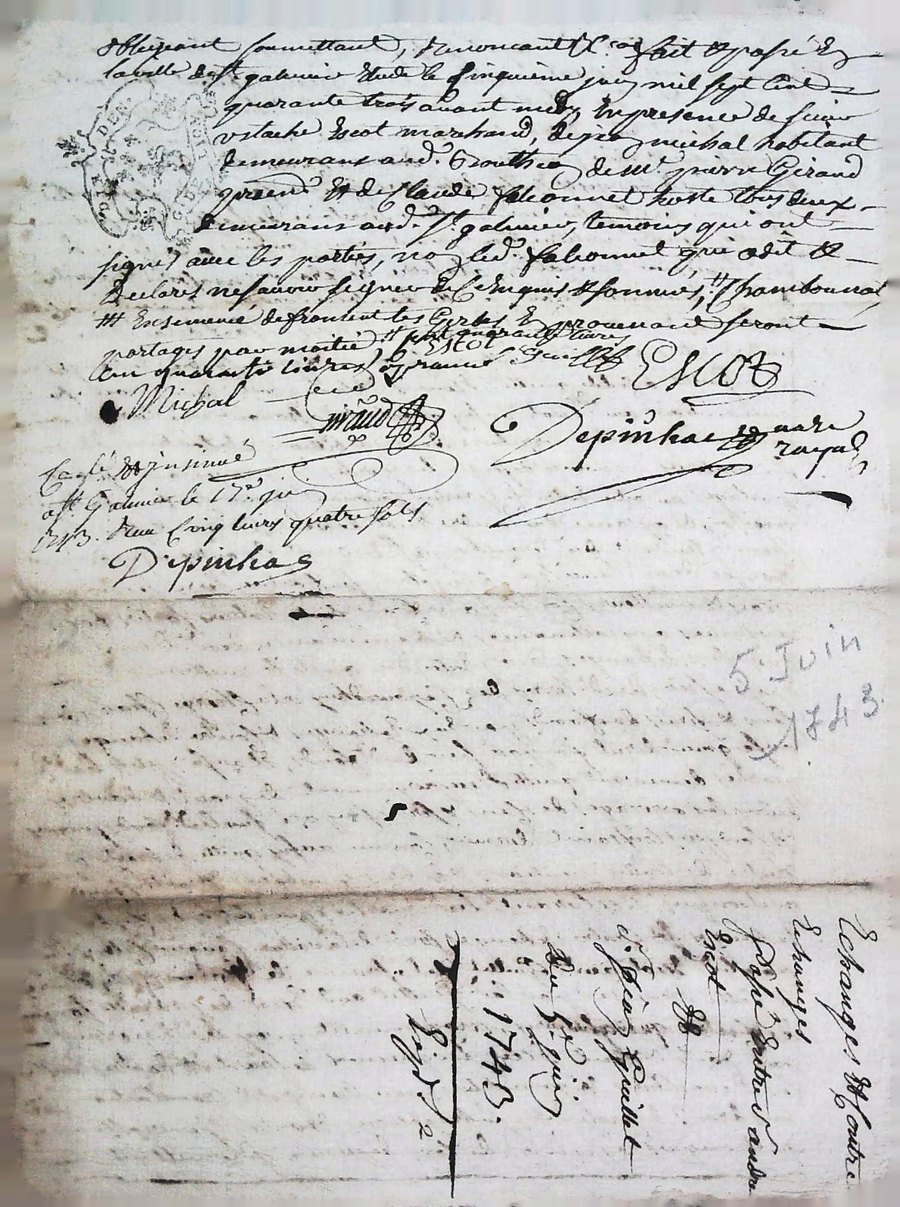 obligeant soumettant, Renoncant &c. fait & passé En
laville de St galmier Etude le Cinquième juin mil sept Cent
quarante trois avant midy, En presence de sieur
ustache Escot marchand, de jean michal habitant
demeurans aud. de Mr. pierre Girand
& de Claude falconnet hoste tous deux
demeurans aud. St galmier, temoins qui ont
signés avec les parties, non led. falconnet qui a dit &
declarés ne savoir signer de Ce Enquis & sommés,
Ensemence de froment les Gerbes En provenans seront
partagés par moitié
quarante livres
ESCOT
ESCOT
Michal
Giraud
Depinhac notaire
royal
Controllé & jnsinué
a St Galmier le 17e juin
1743. Reçu Cinq livres quatre sols
Depinhac
5 Juin
1743
Echanges & Contre
Echanges
Passé Entre Sr andré
Escot
&
Sr jean Guillot
Du 5e juin
1743.